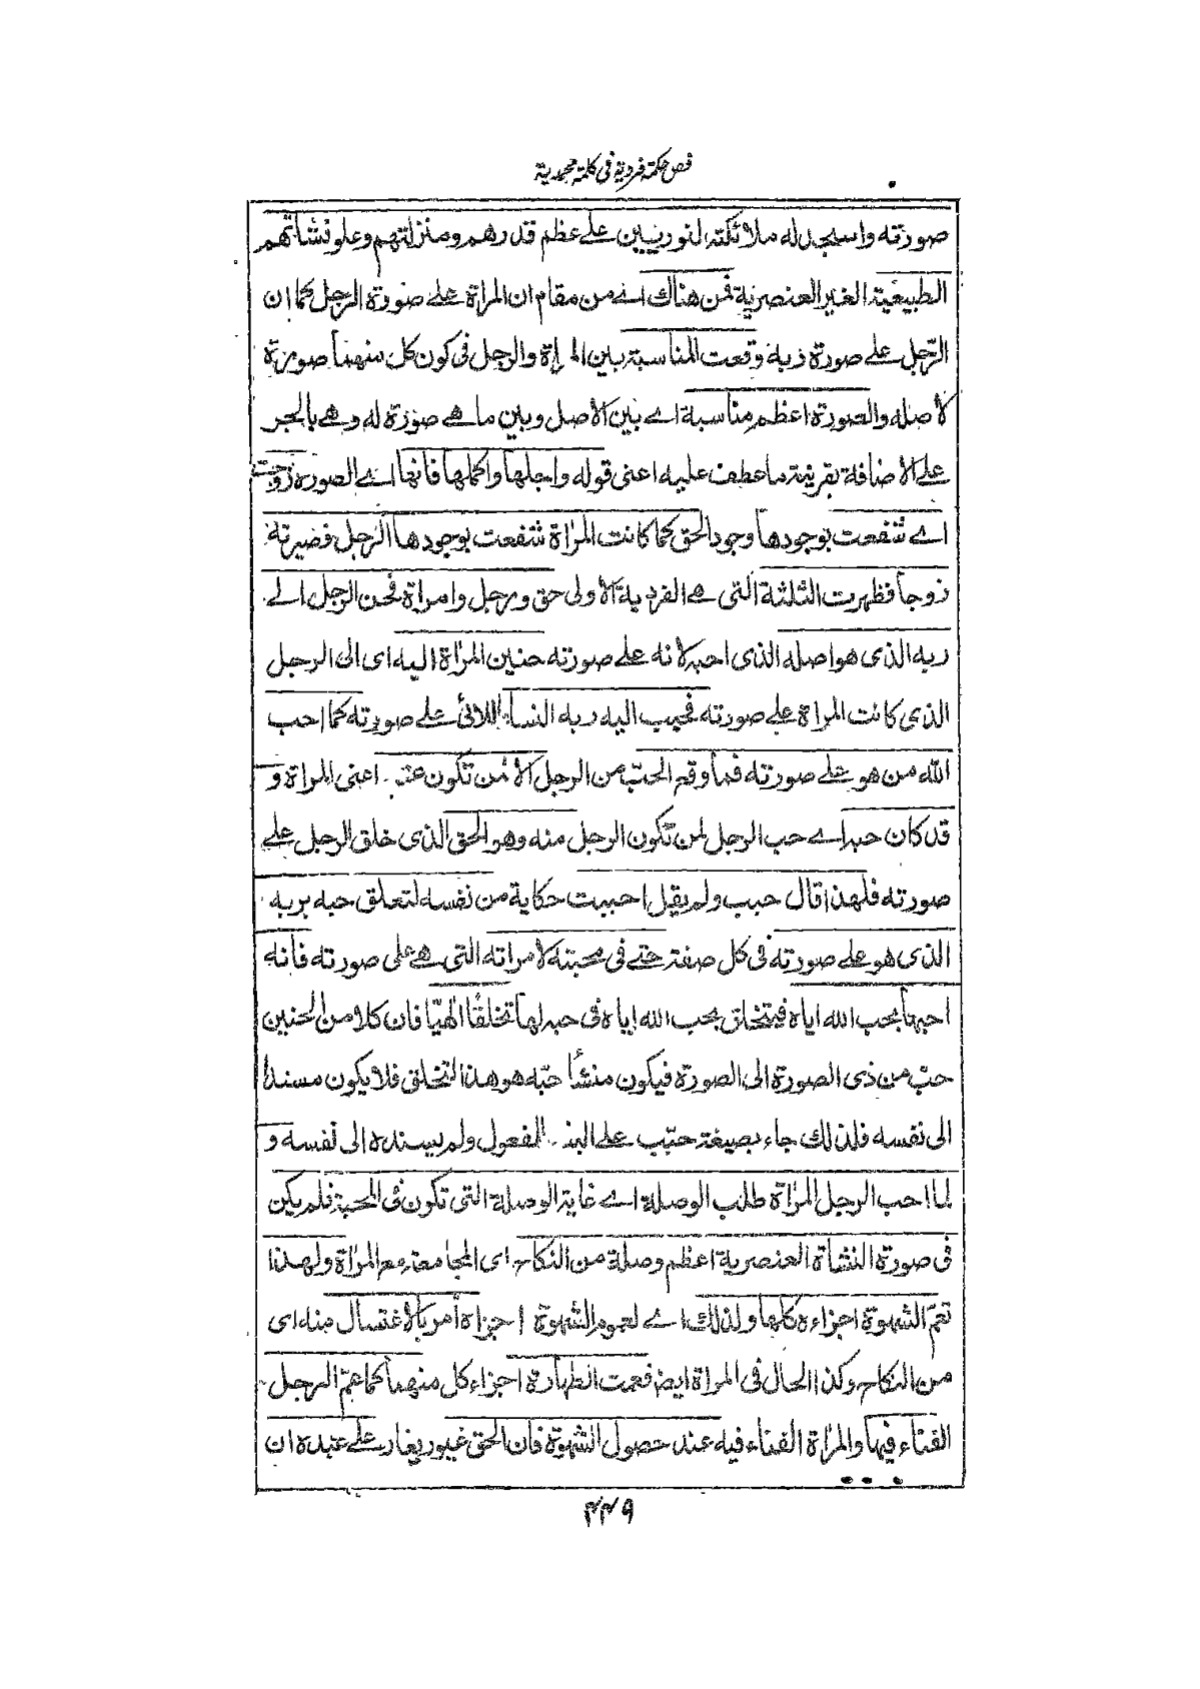 فص حكمة فردية فى كلمة محمدية
صورته واسجد له ملائكته النوريين على عظم قدرهم ومنزلتهم وعلو نشأتهم
الطبيعية الغير العنصرية فمن هناك اے من مقام ان المراة على صورة الرجل كما ان
الرجل على صورة ربه وقعت المناسبة بين المراة والرجل فى كون كل منهما صورة
لاصله والصورة اعظم مناسبة اے بين الاصل وبين ما هے صورة له وهے بالجر
على الاضافة بقرينة ما عطف عليه اعنى قوله واجلها واكملها فانها اے الصورة زوجت
اے شفعت بوجودها وجود الحق كما كانت المراة شفعت بوجودها الرجل فصيرته
زوجا فظهرت الثلثة التى هے الفردية الاولى حق ورجل وامراة فحن الرجل الے
ربه الذى هو اصله الذى احبه لانه على صورته حنين المراة اليه اى الى الرجل
الذى كانت المراة على صورته فحبب اليه ربه النساء اللائى على صورته كما احب
الله من هو على صورته فما وقع الحب من الرجل الا لمن تكون عنه اعنى المراة و
قد كان حبه اے حب الرجل لمن تكون الرجل منه وهو الحق الذى خلق الرجل على
صورته فلهذا قال حبب ولم يقل احببت حكاية من نفسه لتعلق حبه بربه
الذى هو على صورته فى كل صفة حتے فى محبته لامراته التى هے على صورته فانه
احبها بحب الله اياه فيتخلق بحب الله اياه فى حبه لها تخلقا الهيا فان كلا من الحنين
حب من ذى الصورة الى الصورة فيكون منشأ حبه هو هذا التخلق فلا يكون مسندا
الى نفسه فلذلك جاء بصيغة حبب على البناء للمفعول ولم يسنده الى نفسه و
لما احب الرجل المراة طلب الوصلة اے غاية الوصلة التى تكون فى المحبة فلم يكن
فى صورة النشاة العنصرية اعظم وصلة من النكاح اى المجامعة مع المراة ولهذا
تعم الشهوة اجزاءه كلها ولذلك اے لعموم الشهوة اجزاءه أمر بالاغتسال منه اى
من النكاح وكذا الحال فى المراة ايضا فعمت الطهارة اجزاء كل منهما كما عم الرجل
الفناء فيها والمراة الفناء فيه عند حصول الشهوة فان الحق غيور يغار على عبده ان
٤٤٩